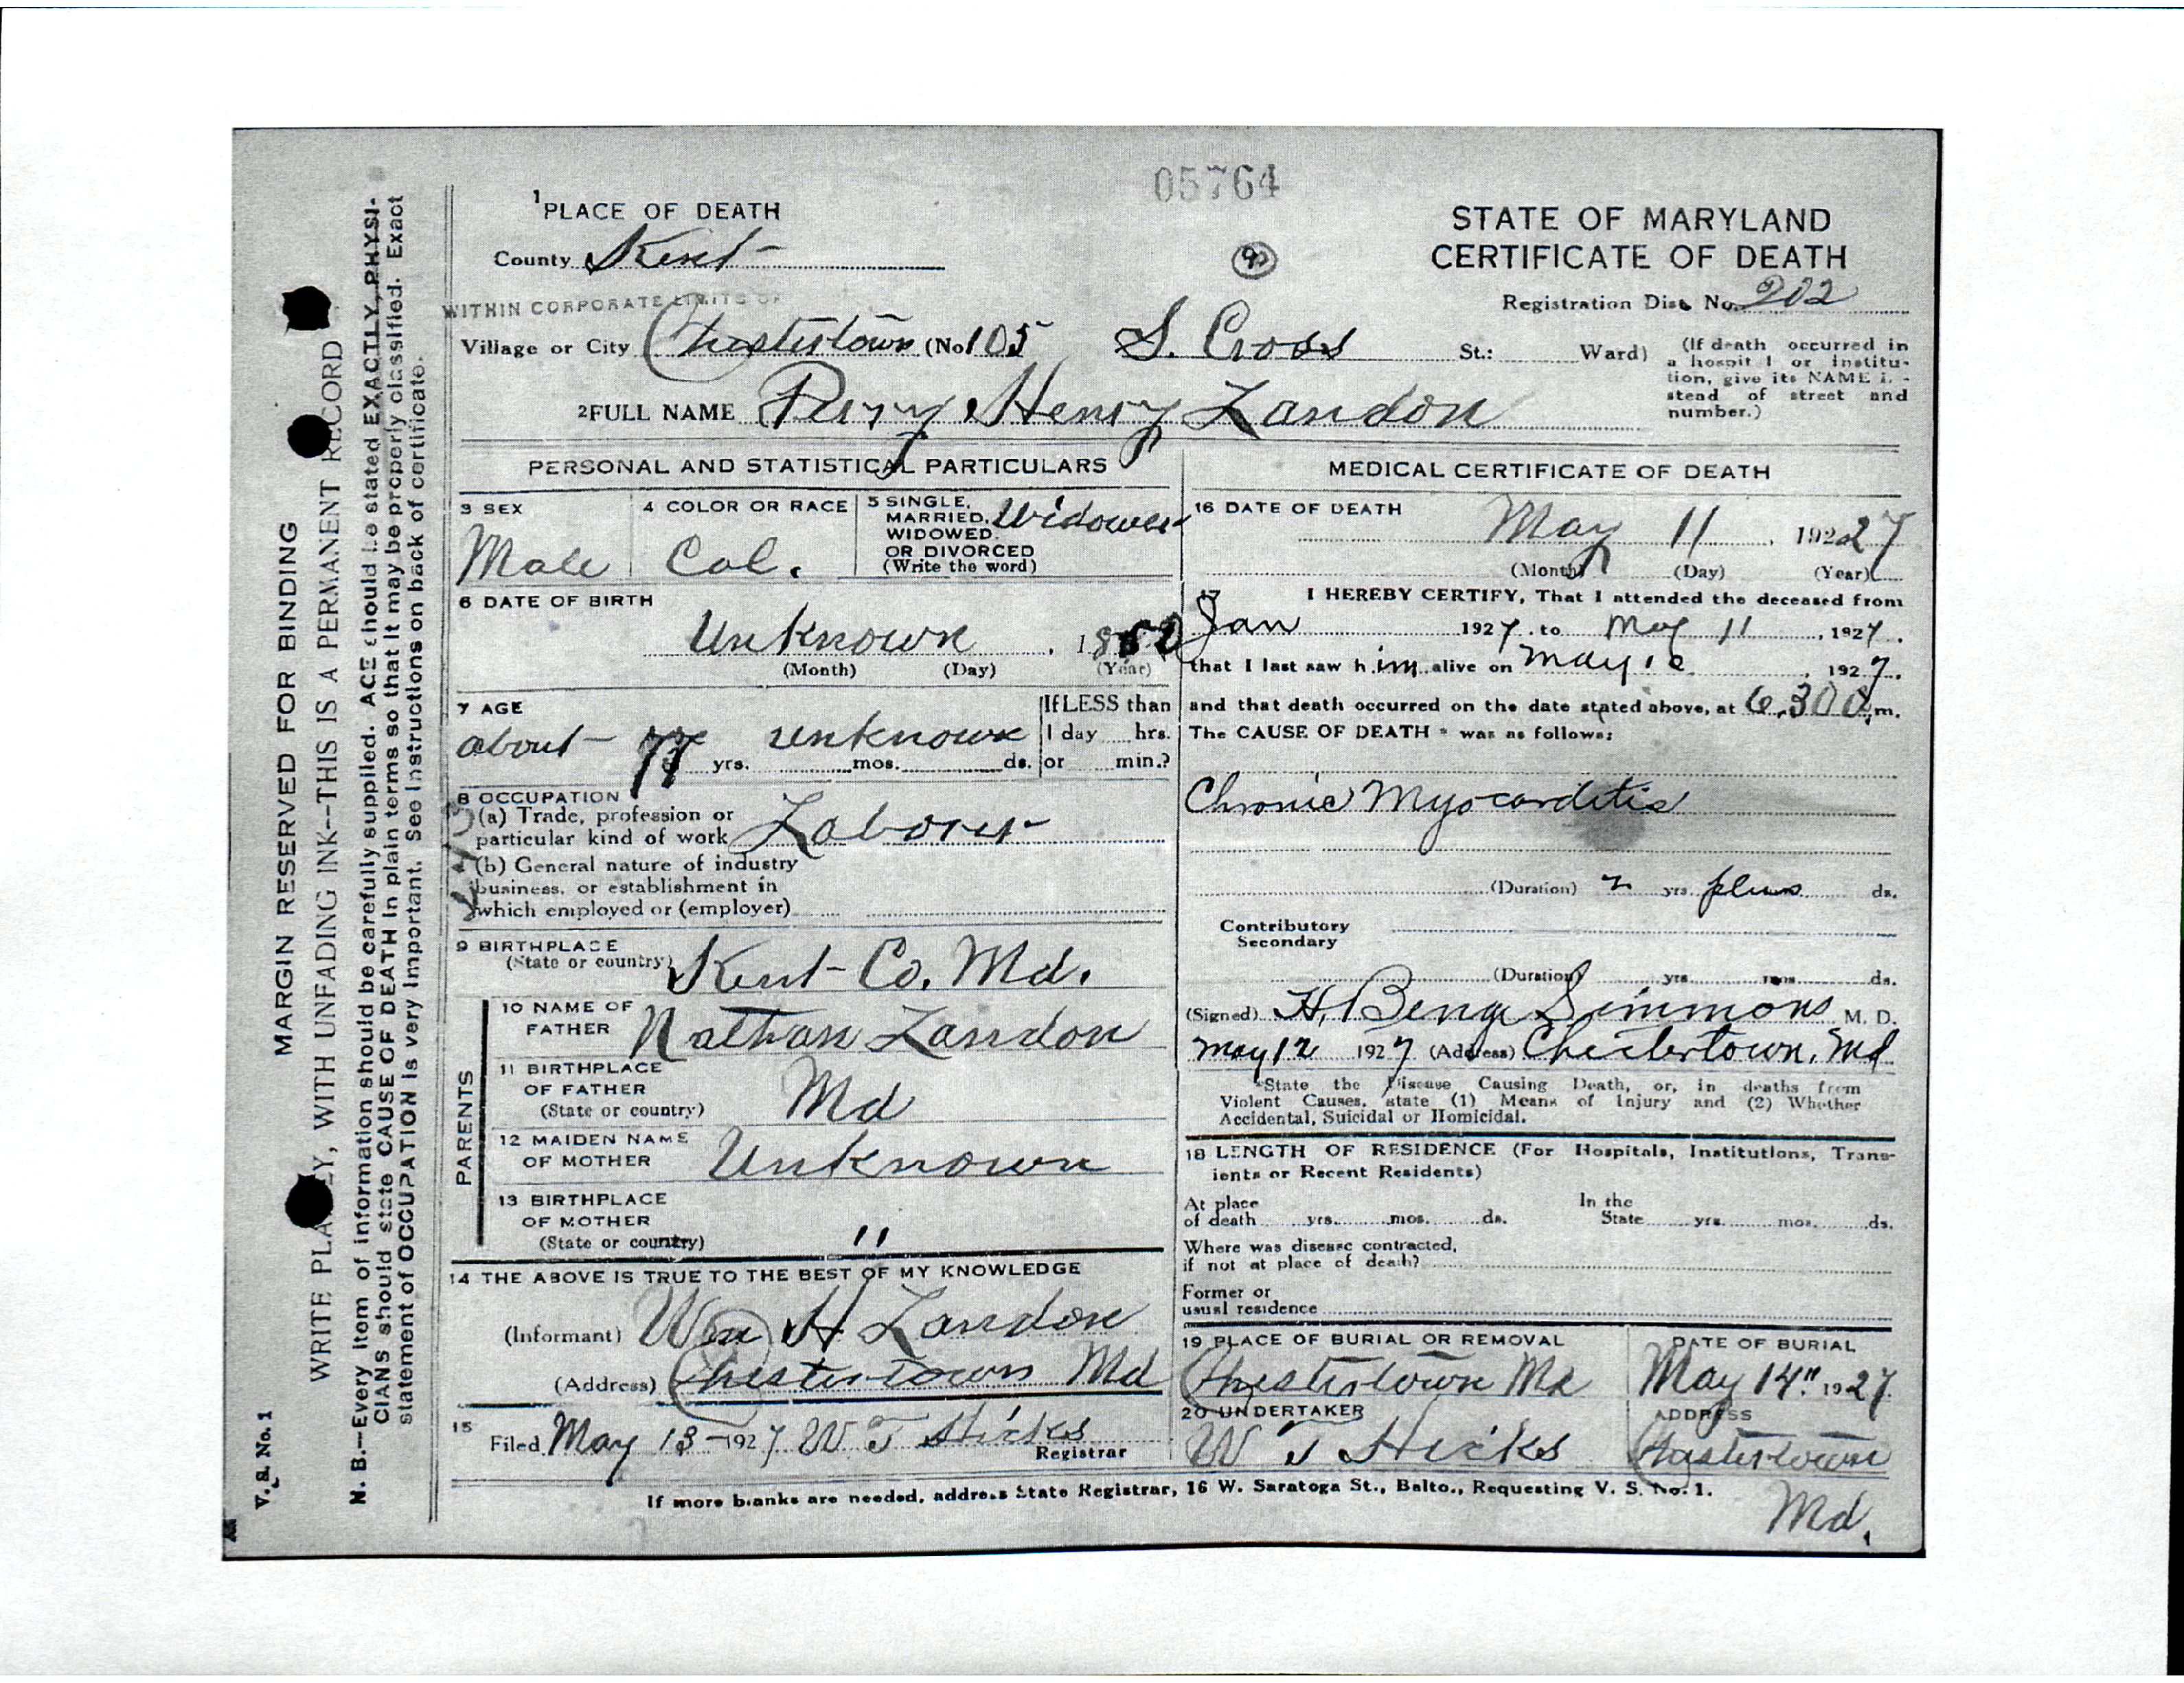 05764
1 PLACE OF DEATH
County Kent
STATE OF MARYLAND
CERTIFICATE OF DEATH
Registration Dist. No. 202
WITHIN CORPORATE LIMITS OF
Village or City Chestertown (No 105 S. Cross St.: Ward)
(If death occurred in
a hospit l or institu-
tion, give its NAME i. -
stead of street and
number.)
2 FULL NAME Perry Henry Landon
PERSONAL AND STATISTICAL PARTICULARS
3 SEX
Male
4 COLOR OR RACE
Col.
5 SINGLE,
MARRIED,
WIDOWED
OR DIVORCED
(Write the word)
Widower
6 DATE OF BIRTH
Unknown , 1850
(Month) (Day) (Year)
7 AGE
about 77 yrs. unknown mos. ds.
If LESS than
1 day hrs.
or min.?
8 OCCUPATION
(a) Trade, profession or
particular kind of work Laborer
(b) General nature of industry
business, or establishment in
which employed or (employer)
9 BIRTHPLACE
(State or country) Kent Co. Md.
PARENTS
10 NAME OF
FATHER Nathan Landon
11 BIRTHPLACE
OF FATHER
(State or country) Md
12 MAIDEN NAME
OF MOTHER Unknown
13 BIRTHPLACE
OF MOTHER
(State or country) "
14 THE ABOVE IS TRUE TO THE BEST OF MY KNOWLEDGE
(Informant) Wm H Landon
(Address) Chestertown Md
15
Filed May 13 - 1927 W T Hicks
Registrar
MEDICAL CERTIFICATE OF DEATH
16 DATE OF DEATH
May 11 , 19227
(Month) (Day) (Year)
17 I HEREBY CERTIFY, That I attended the deceased from
Jan 1927, to May 11, 1927.
that I last saw him alive on May 10, 1927.
and that death occurred on the date stated above, at 6.30 m.
The CAUSE OF DEATH * was as follows:
Chronic Myocarditis
(Duration) 2 yrs. plus ds.
Contributory
Secondary
(Duration) yrs. mos. ds.
(Signed) H. Benj Simmons M. D.
May 12 1927 (Address) Chestertown, Md
*State the Disease Causing Death, or, in deaths from
Violent Causes, state (1) Means of Injury and (2) Whether
Accidental, Suicidal or Homicidal.
18 LENGTH OF RESIDENCE (For Hospitals, Institutions, Trans-
ients or Recent Residents)
At place
of death yrs. mos. ds.
In the
State yrs. mos. ds.
Where was disease contracted,
if not at place of death?
Former or
usual residence
19 PLACE OF BURIAL OR REMOVAL
Chestertown Md
DATE OF BURIAL
May 14" 1927.
20 UNDERTAKER
W T Hicks
ADDRESS
Chestertown
Md.
If more blanks are needed, address State Registrar, 16 W. Saratoga St., Balto., Requesting V. S. No. 1.
MARGIN RESERVED FOR BINDING
WRITE PLA Y, WITH UNFADING INK--THIS IS A PERMANENT RECORD
N. B.—Every item of information should be carefully supplied. AGE should be stated EXACTLY, PHYSI-
CIANS should state CAUSE OF DEATH in plain terms so that it may be properly classified. Exact
statement of OCCUPATION is very important. See instructions on back of certificate.
V. S. No. 1